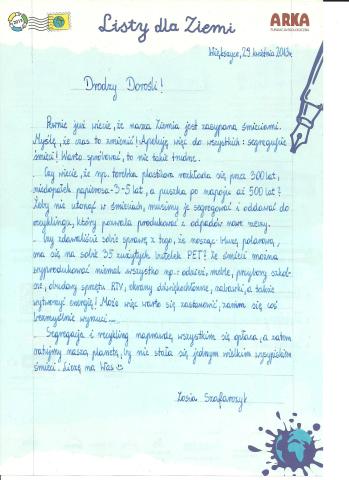 Listy dla Ziemi
ARKA
Większyce, 29 kwietnia 2013r.
Drodzy Dorośli!
Pewnie już wiecie, że nasza Ziemia jest zasypana śmieciami.
Myślę, że czas to zmienić! Apeluję więc do wszystkich: segregujcie
śmieci! Warto spróbować, to nie takie trudne.
Czy wiecie, że np. torebka plastikowa rozkłada się przez 300 lat,
niedopałek papierosa -3-5 lat, a puszka po napoju aż 500 lat?
Żeby nie utonąć w śmieciach, musimy je segregować i oddawać do
recyklingu, który pozwala produkować z odpadów nowe rzeczy.
Czy zdawaliście sobie sprawę z tego, że nosząc bluzę polarową,
ma się na sobie 35 zużytych butelek PET? Ze śmieci można
wyprodukować niemal wszystko np.: odzież, meble, przybory szkol-
ne, obudowy sprzętu RTV, ekrany dźwiękochłonne, zabawki, a także
wytworzyć energię! Może więc warto się zastanowić, zanim się coś
bezmyślnie wyrzuci...
Segregacja i recykling naprawdę wszystkim się opłaca, a zatem
ratujmy naszą planetę, by nie stała się jednym wielkim wysypiskiem
śmieci. Liczę na Was
Zosia Szafarczyk